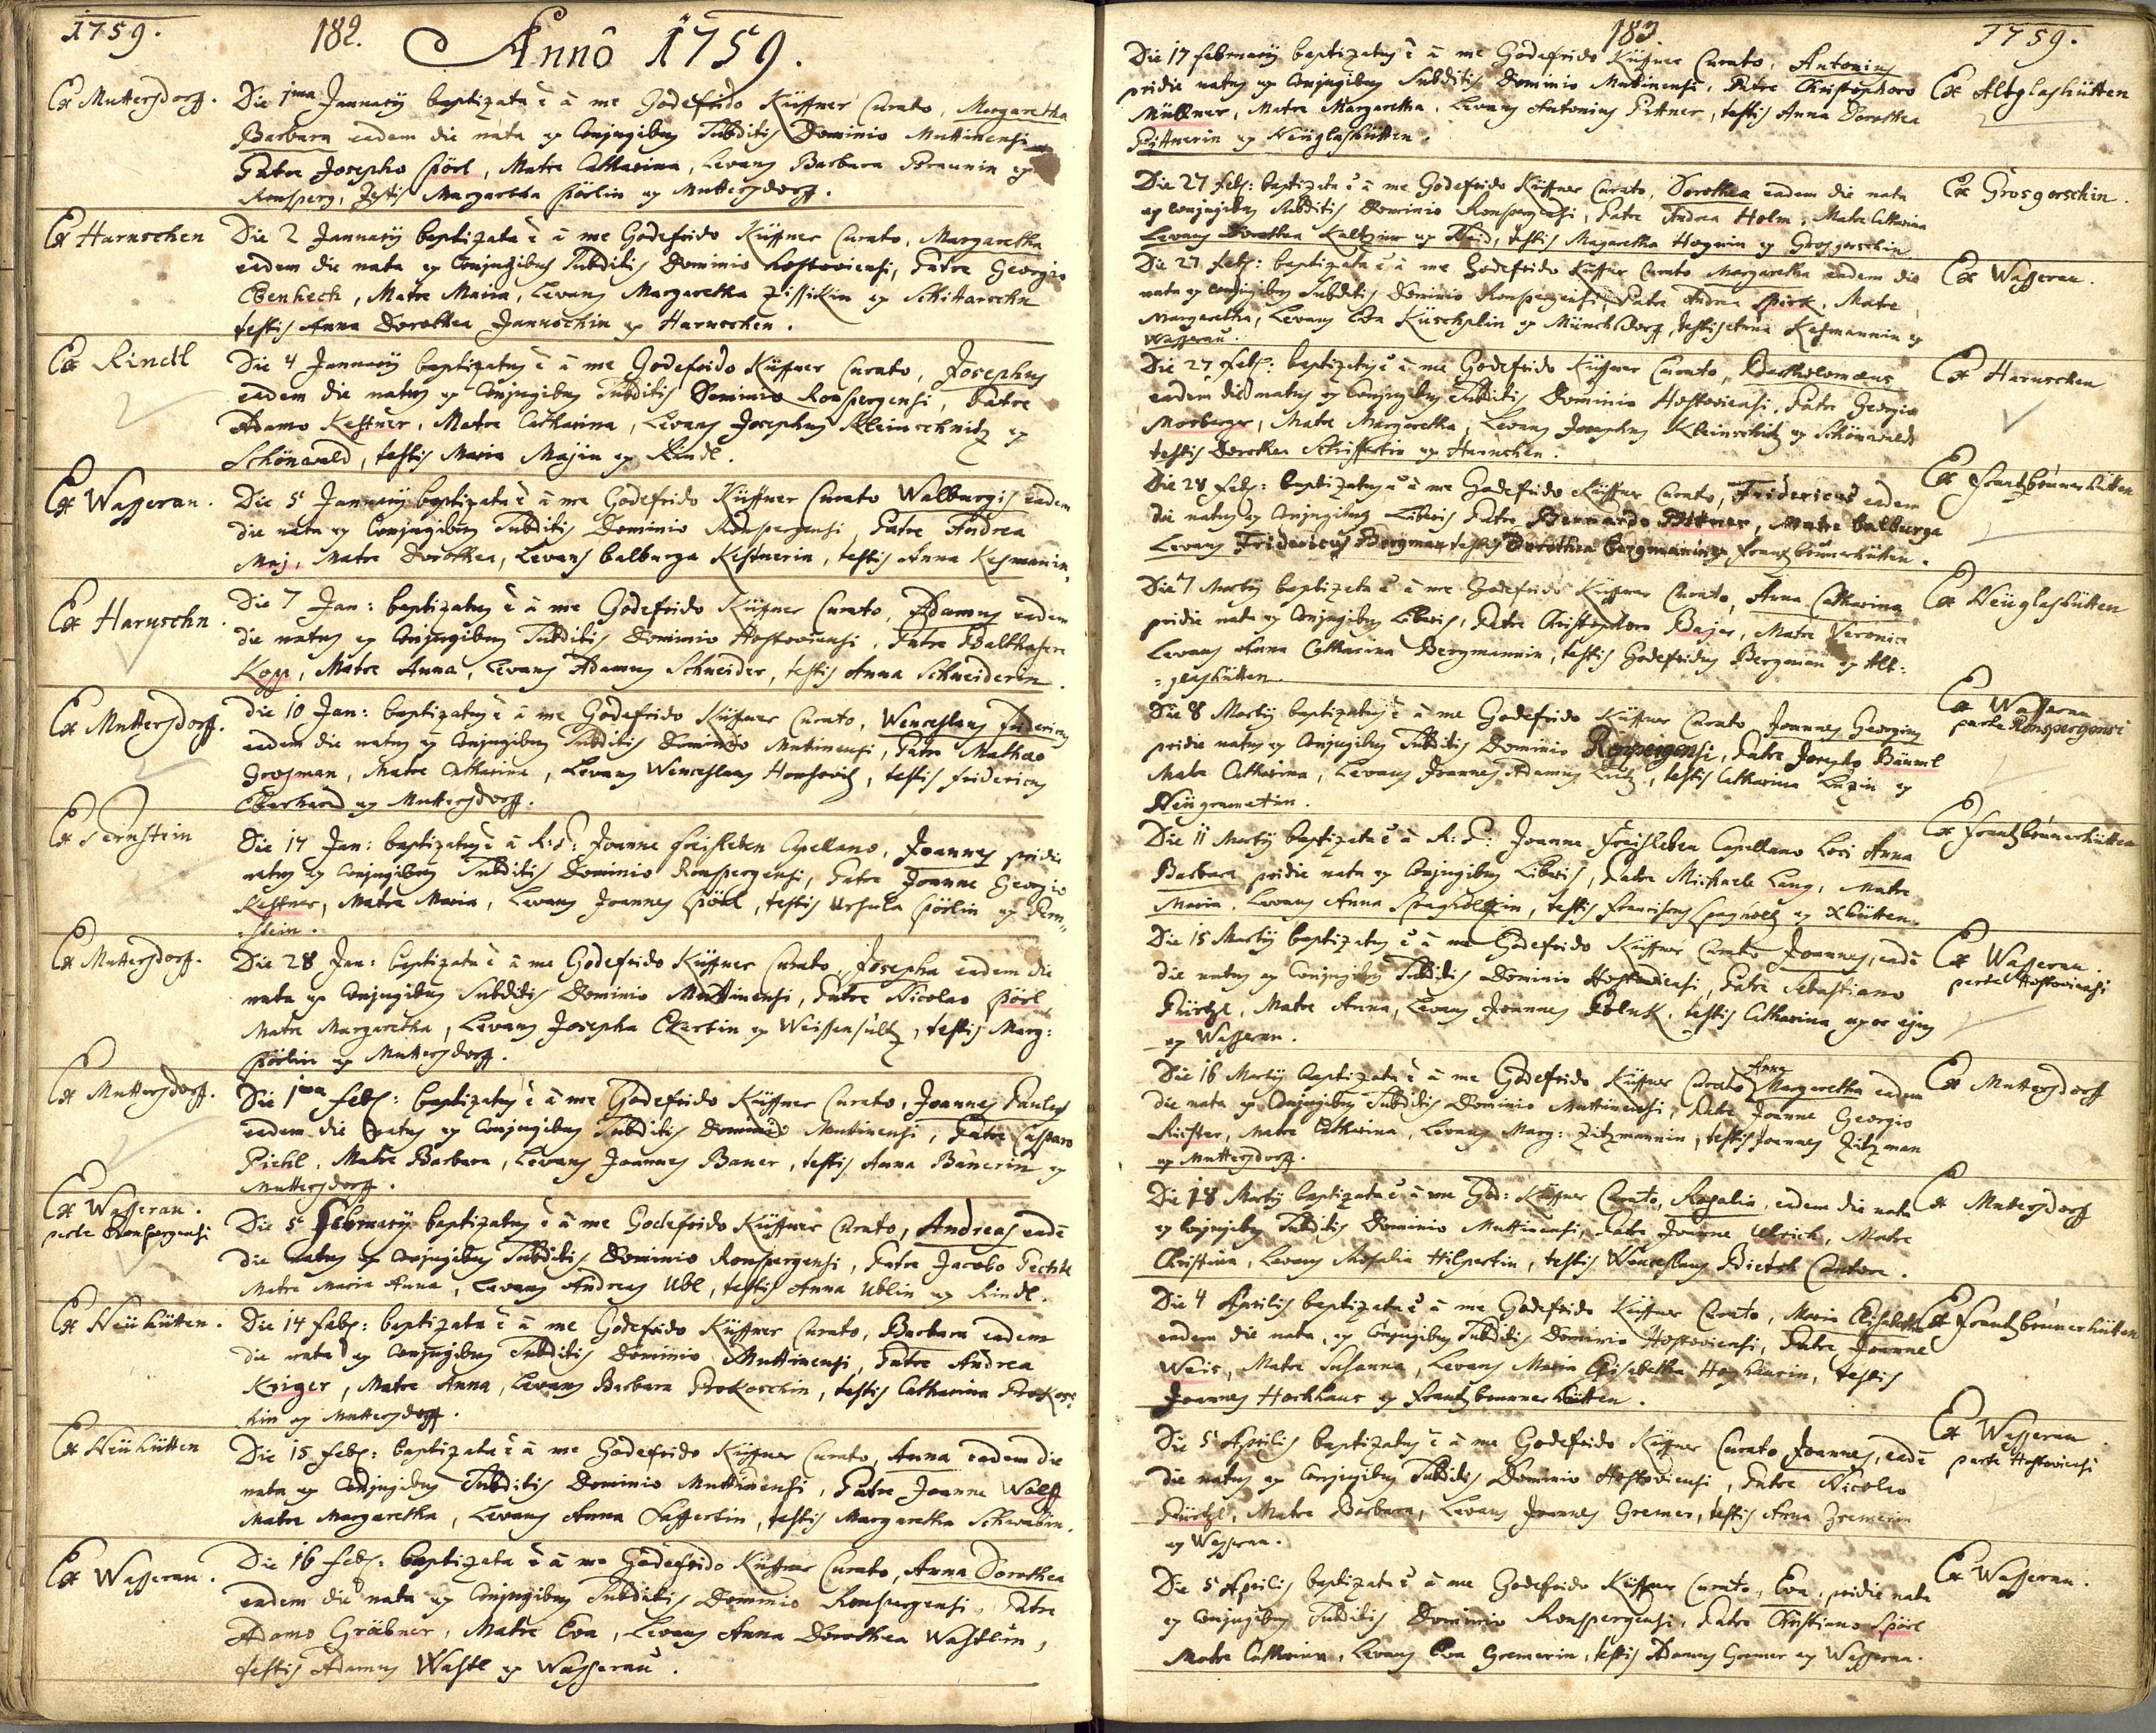 1759.
182.
Annô 1759.
Ex Muttersdorff.
Die 1ma January baptizata ê â me Godefrido Küffner Curato, Margaretha
Barbara eadem die nata ex Conjugibus Subditis Dominio Muttinensi
Patre Josepho Spörl, Matre Catharina, Levans Barbara Braunin ex
Ronsperg, Testis Margaretha Spörlin ex Muttersdorff.
Ex Haruschen
Die 2 January baptizata ê â me Godefrido Küffner Curato, Margaretha
eadem die nata ex Conjugibus Subditis Dominio Hostoviensi, Patre Georgio
Ebenhech, Matre Maria, Levans Margaretha
testis Anna Dorothea Januschin ex Haruschen.
Ex Rindl
Die 4 January baptizatus ê â me Godefrido Küffner Curato, Josephus
eadem die natus ex Conjugibus Subditis Dominio Ronspergensi, Patre
Adamo Kestner, Matre Catharina, Levans Josephus Kleinschnitz ex
Schönwald, testis Maria Majin ex Rindl.
Ex Wasserau.
Die 5 January baptizata ê â me Godefrido Küffner Curato Walburgis eadem
die nata ex Conjugibus Subditis Dominio Ronspergensi Patre Andrea
Maj, Matre Dorothea, Levans balburga Kestnerin, testis Anna Kesmanin.
Ex Haruschn.
Die 7 Jan: baptizatus ê â me Godefrido Küffner Curato, Adamus eadem
die natus ex Conjugibus Subditis Dominio Hostoviensi, Patre Balthasere
Kopp, Matre Anna, Levans Adamus Schneider, testis Anna Schneiderin.
Ex Muttersdorff.
Die 10 Jan: baptizatus ê â me Godefrido Küffner Curato, Wenceslaus Fridericus
eadem die natus ex Conjugibus Subditis Dominio Mutinensi, Patre Mathaeo
Grosman, Matre Catharina, Levans Wenceslaus, testis Fridericus
Eberhard ex Muttersdorff.
Ex Pernstein
Die 17 Jan: baptizatus ê â R:D: Joanne Freisleben Capellano, Joannes pridie
natus ex Conjugibus Subditis Dominio Ronspergensi, Patre Joanne Georgio
Kestner, Matre Maria, Levans Joannes Spörl, testis Ursula Spörlin ex Pern„
„stein.
Ex Muttersdorff.
Die 28 Jan: baptizata ê â me Godefrido Küffner Curato, Josepha eadem die
nata ex Conjugibus Subditis Dominio Muttinensi, Patre Nicolao Spörl
Matre Margaretha, Levans Josepha Ekertin ex Weissensultz, testis Marg:
Spörlin ex Muttersdorff.
Ex Muttersdorff.
Die 1ma feb: baptizatus ê â me Godefrido Küffner Curato, Joannes Paulus
eadem die natus ex Conjugibus Subditis Dominio Mutinensi, Patre Casparo
Piehl, Matre Barbara, Levans Joannes Bauer, testis Anna Bauerin ex
Muttersdorff.
Ex Wasserau.
parte Ronspergensi
Die 5 February baptizatus ê â me Godefrido Küffner Curato, Andreas eadē
die natus ex Conjugibus Subditis Dominio Ronspergensi, Patre Jacobo
Matre Maria Anna, Levans Andreas Ubl, testis Anna Ublin ex Rindl.
Ex Neühütten.
Die 14 feb: baptizata ê â me Godefrido Küffner Curato, Barbara eadem
die nata ex Conjugibus Subditis Dominio Muttinensi, Patre Andrea
Kriger, Matre Anna, Levans Barbara Prokoschin, testis Catharina Prokosc:
hin ex Muttersdorff.
Ex Neühütten
Die 15 feb: baptizata ê â me Godefrido Küffner Curato, Anna eadem die
nata ex Conjugibus Subditis Dominio Muttinensi, Patre Joanne Wolff
Matre Margaretha, Levans Anna, testis Margaretha Schwabin.
Ex Wasserau.
Die 16 feb: baptizata ê â me Godefrido Küffner Curato, Anna Dorothea
eadem die nata ex Conjugibus Subditis Dominio Ronspergensi, Patre
Adamo Gräbner, Matre Eva, Levans Anna Dorothea Wastlin,
testis Adamus Wastl ex Wasserau.
183.
1759.
Die 17 february baptizatus ê â me Godefrido Küffner Curato, Antonius
pridie natus ex Conjugibus Subditis Dominio Mutinensi, Patre Christophoro
Müllner, Matre Margaretha, Levans Antonius Pittner, testis Anna Dorothea
Pittnerin ex Neüglashütten.
Ex Altglashütten
Die 27 feb: baptizata ê â me Godefrido Küffner Curato, Dorothea eadem die nata
ex Conjugibus Subditis Dominio Ronspergensi, Patre Andrea Holm, Matre Catharina
Levans Dorothea, testis Magaretha ex Grosgorschin
Ex Grosgorschin.
Die 27 feb: baptizata ê â me Godefrido Küffner Curato Margaretha eadem die
nata ex Conjugibus Subditis Dominio Ronspergensi, Patre Andrea Spirk, Matre
Margaretha, Levans Eva ex Münchsdorff, testis Anna Kesmannin ex
Wasserau.
Ex Wasserau.
Die 27 feb: baptizatus ê â me Godefrido Küffner Curato, Bartholomaeus
eadem die natus ex Conjugibus Subditis Dominio Hostoviensi, Patre Georgio
Morberger, Matre Margaretha, Levans Josephus Kleinschnitz ex Schönwald
testis Dorothea ex Haruschen.
Ex Haruschen
Die 28 feb: baptizatus ê â me Godefrido Küffner Curato, Fridericus eadem
die natus ex Conjugibus Liberis Patre Bernardo Bittner, Matre balburga
Levans Fridericus Bergman testis Dorothea bergmanin ex Frantzbrunerhütten.
Ex Frantzbrunerhütten
Die 7 Marty baptizata ê â me Godefrido Küffner Curato, Anna Catharina
pridie nata ex Conjugibus Liberis, Patre Christophoro Bajer, Matre Veronica
Levans Anna Catharina Bergmannin, testis Godefridus Bergman ex Alt:
:glashütten.
Ex Neüglashütten
Die 8 Marty baptizatus ê â me Godefrido Küffner Curato Joannes Georgius
pridie natus ex Conjugibus Subditis Dominio Ronspergensi, Patre Josepho Bäuml
Matre Catharina, Levans Joannes Adamus Lutz, testis Catharina Luzin ex
Neügrametin.
Ex Wasserau
parte Ronspergensi
Die 11 Marty baptizata ê â R:D: Joanne Freisleben Capellano Loci Anna
Barbara pridie nata ex Conjugibus Liberis, Patre Michaele Lang, Matre
Maria, Levans Anna, testis Franciscus ex Xhütten.
Ex Frantzbrunerhütten
Die 15 Marty baptizatus ê â me Godefrido Küffner Curato Joannes, eadē
die natus ex Conjugibus Subditis Dominio Hostoviensi, Patre Sebastiano
Pürtzl, Matre Anna, Levans Joannes Polnk, testis Catharina uxor ejus
ex Wasserau.
Ex Wasserau.
parte Hostoviensi
Die 16 Marty baptizata ê â me Godefrido Küffner Curato Anna Margaretha eadem
die nata ex Conjugibus Subditis Dominio Muttinensi, Patre Joanne Georgio
Richter, Matre Catharina, Levans Marg: Zitzmannin, testis Joannes Zitzman
ex Muttersdorff.
Ex Muttersdorff
Die 18 Marty baptizata ê â me God: Küffner Curato, Rosalia, eadem die nata
ex Conjugibus Subditis Dominio Muttinensi, Patre Joanne Ullrich, Matre
Christina, Levans Rosalia Hilpertin, testis Wenceslaus Dietsch Cantore.
Ex Muttersdorff
Die 4 Aprilis baptizata ê â me Godefrido Küffner Curato, Maria Elisabetha
eadem die nata, ex Conjugibus Subditis Dominio Hostoviensi, Patre Joanne
Weis, Matre Susanna, Levans Maria Elisabetha, testis
Joannes Hochhaus ex Frantzbrunnerhütten.
Ex Frantzbrunerhütten
Die 5 Aprilis baptizatus ê â me Godefrido Küffner Curato Joannes, eadē
die natus ex Conjugibus Subditis Dominio Hostoviensi, Patre Nicolao
Pürtzl, Matre Barbara, Levans Joannes Gremer, testis Anna Gremerin
ex Wasserau.
Ex Wasserau.
parte Hostoviensi
Die 5 Aprilis baptizata ê â me Godefrido Küffner Curato, Eva, pridie nata
ex Conjugibus Subditis Dominio Ronspergensi, Patre Christiano Spörl
Matre Catharina, Levans Eva Gremerin, testis Adamus Gremer ex Wasserau.
Ex Wasserau.